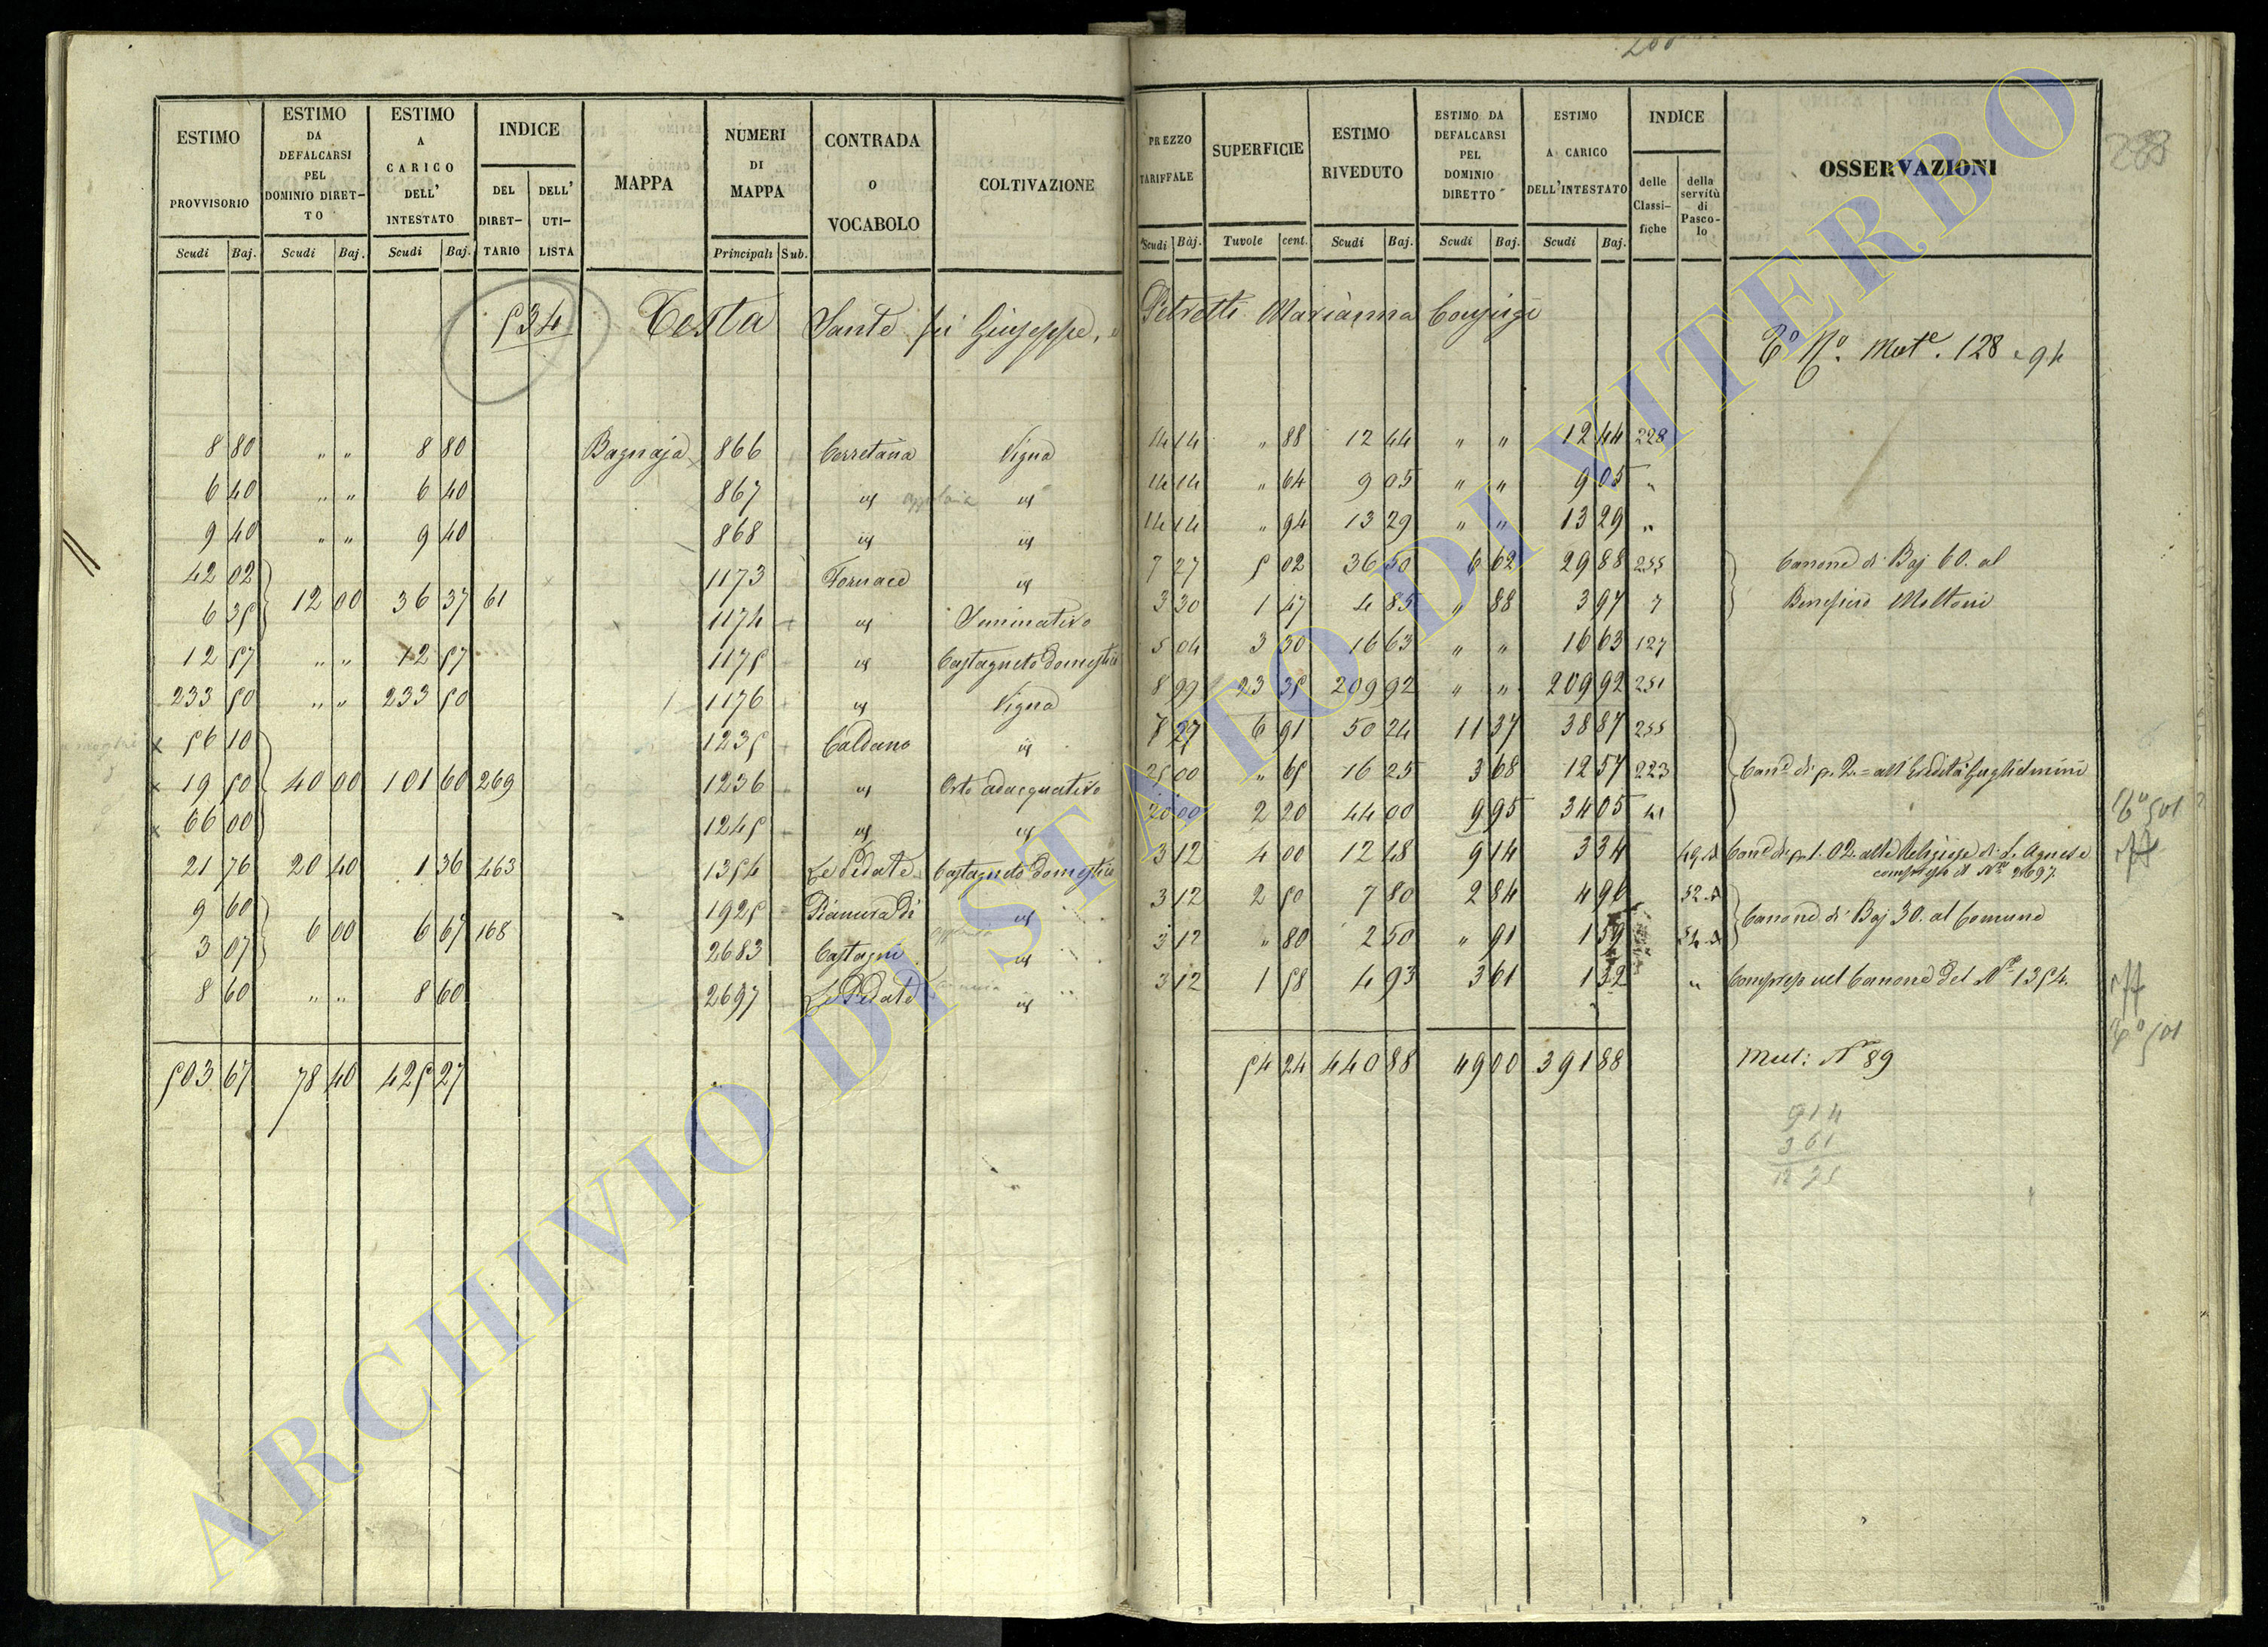 200
ESTIMO PROVVISORIO Scudi Baj.
ESTIMO DA DEFALCARSI PEL DOMINIO DIRET-TO Scudi Baj.
ESTIMO A CARICO DELL' INTESTATO Scudi Baj.
INDICE DEL DIRET-TARIO DELL' UTI-LISTA
MAPPA
NUMERI DI MAPPA Principali Sub.
CONTRADA O VOCABOLO
COLTIVAZIONE
PREZZO TARIFFALE Scudi Baj.
SUPERFICIE Tavole cent.
ESTIMO RIVEDUTO Scudi Baj.
ESTIMO DA DEFALCARSI PEL DOMINIO DIRETTO Scudi Baj.
ESTIMO A CARICO DELL'INTESTATO Scudi Baj.
INDICE delle Classi-fiche della servitù di Pasco-lo
OSSERVAZIONI
534 Testa Sante fu Giuseppe, e Petretti Marianna Conjugi
Mut.e 128 e 94
8 80 " " 8 80 Bagnaja 866 Cerretana Vigna 14 14 " 88 12 44 " " 12 44 228
6 40 " " 6 40 867 id id 14 14 " 64 9 05 " " 9 05 "
9 40 " " 9 40 868 id id 14 14 " 94 13 29 " " 13 29 "
42 02 1173 Fornace id 7 27 5 02 36 50 6 62 29 88 255 Canone di Baj 60. al
12 00 36 37 61
6 35 1174 id Seminativo 3 30 1 47 4 85 " 88 3 97 7 Beneficio Moltoni
12 57 " " 12 57 1175 id Castagneto domestico 5 04 3 30 16 63 " " 16 63 127
233 50 " " 233 50 1176 id Vigna 8 99 23 35 209 92 " " 209 92 251
56 10 1235 Caldano id 7 27 6 91 50 24 11 37 38 87 255
19 50 40 00 101 60 269 1236 id Orto adacquativo 25 00 " 65 16 25 3 68 12 57 223 Can.e di s. 2.= all'Eredità Guglielmini
66 00 1245 id id 20 00 2 20 44 00 9 95 34 05 41
21 76 20 40 1 36 463 1354 Le Pedate Castagneto domestico 3 12 4 00 12 48 9 14 3 34 49.A Can.e di s. 1.02. alle Religiose di S. Agnese
compreso il N.ro 2697.
9 60 1925 Pianura di id 3 12 2 50 7 80 2 84 4 96 52.A
6 00 6 67 168 Canone di Baj 30. al Comune
3 07 2683 Castagni id 3 12 " 80 2 50 " 91 1 59
8 60 " " 8 60 2697 Le Pedate id 3 12 1 58 4 93 3 61 1 32 " Compreso nel Canone del N.ro 1354.
503 67 78 40 425 27 54 24 440 88 49 00 391 88 Mut: N.ro 89
914
361
12 75
ARCHIVIO DI STATO DI VITERBO